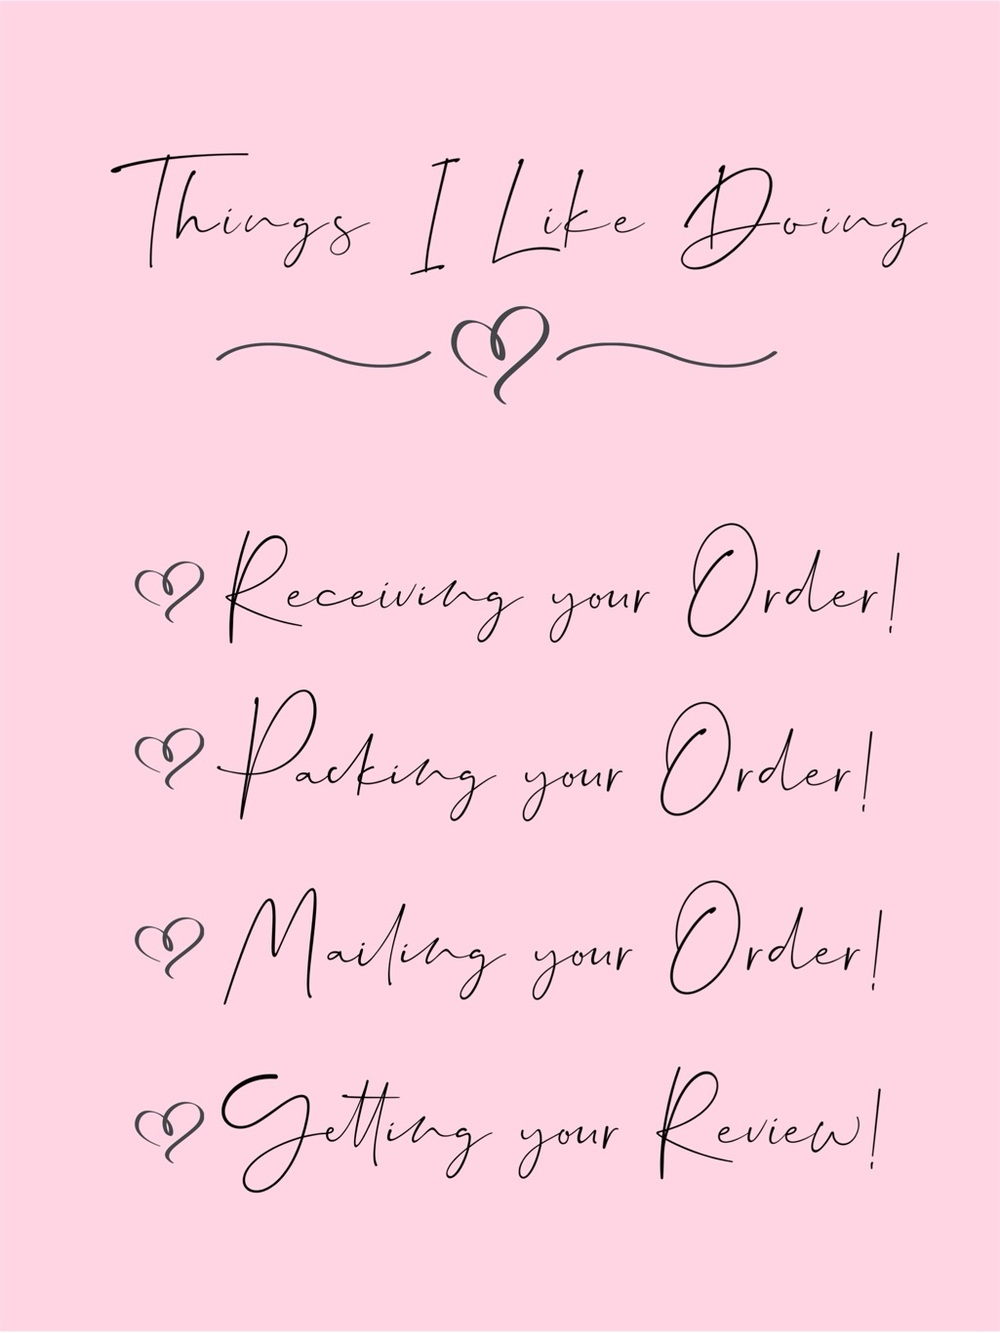 Things I Like Doing
Receiving your Order!
Packing your Order!
Mailing your Order!
Getting your Review!